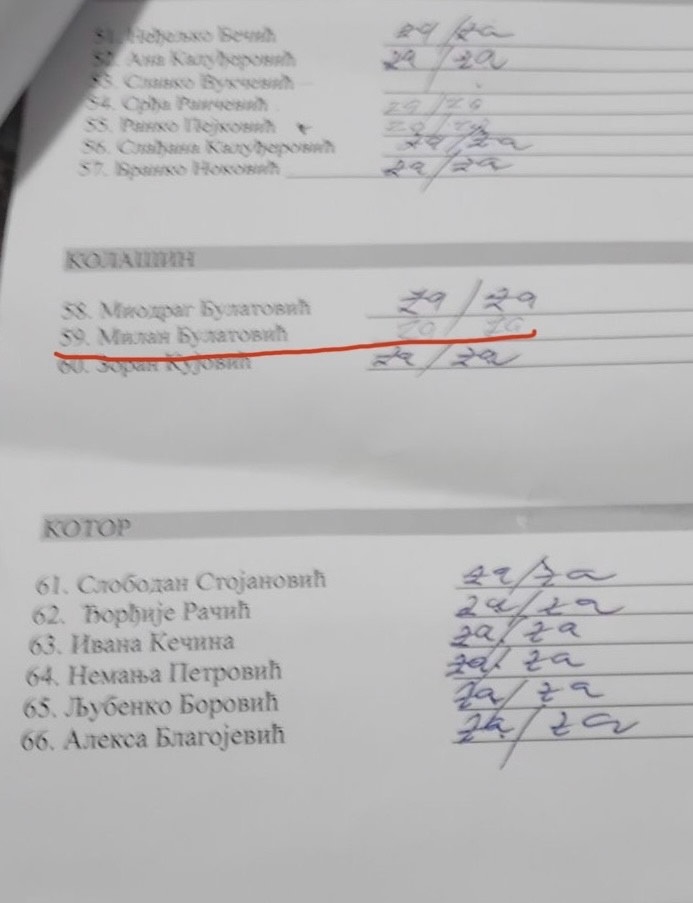 51. Неђељко Бечић za / za
52. Ана Калуђеровић za / za
53. Славко Вукчевић
54. Срђа za / za
55. Ранко Пејковић za / za
56. Слађана Калуђеровић za / za
57. Бранко Ноковић za / za
КОЛАШИН
58. Миодраг Булатовић za / za
59. Милан Булатовић za / za
60. Зоран Кујовић za / za
КОТОР
61. Слободан Стојановић za / za
62. Ђорђије Рачић za / za
63. Ивана Кечина za / za
64. Немања Петровић za / za
65. Љубенко Боровић za / za
66. Алекса Благојевић za / za